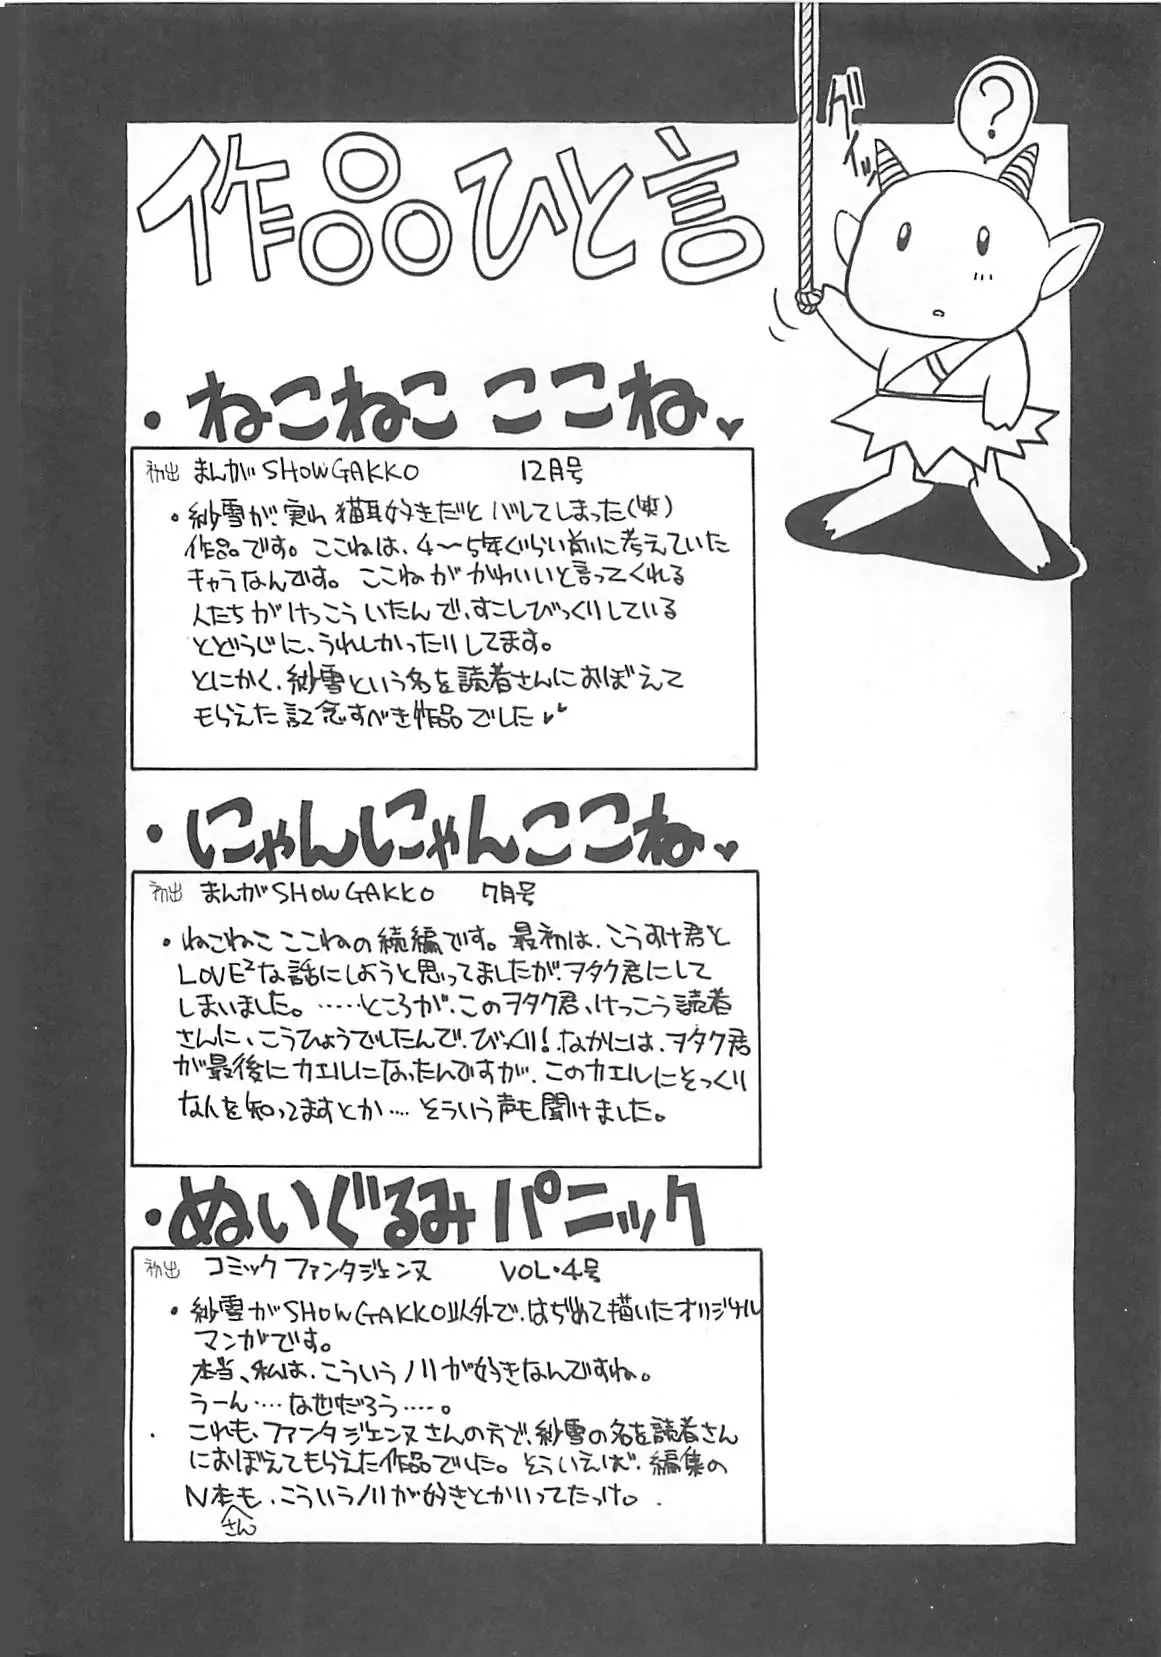 作品ひと言
グイッ
?
・ねこねこ ここね♥
初出 まんがSHOWGAKKO 12月号
・紗雪が、実は猫耳好きだとバレてしまった(笑)
作品です。ここねは、4〜5年ぐらい前に考えていた
キャラなんです。ここねがかわいいと言ってくれる
人たちがけっこういたんで、すこしびっくりしている
とどうじに、うれしかったりしてます。
とにかく、紗雪という名を読者さんにおぼえて
もらえた記念すべき作品でした♥♥
・にゃんにゃんここね♥
初出 まんがSHOWGAKKO 7月号
・ねこねこ ここねの続編です。最初は、こうすけ君と
LOVE²な話にしようと思ってましたが、ヲタク君にして
しまいました。……ところが、このヲタク君、けっこう読者
さんに、こうひょうでしたんで、びっくり!なかには、ヲタク君
が最後にカエルになったんですが、このカエルにそっくり
な人を知ってますとか…. そういう声も聞けました。
・ぬいぐるみパニック
初出 コミックファンタジェンヌ VOL・4号
・紗雪がSHOWGAKKO以外で、はぢめて描いたオリジナル
マンガです。
本当、私は、こういうノリが好きなんですね。
うーん…. なぜだろう…..。
これも、ファンタジェンヌさんの方で、紗雪の名を読者さん
におぼえてもらえた作品でした。そういえば、編集の
N本さんも、こういうノリが好きとかいってたっけ。